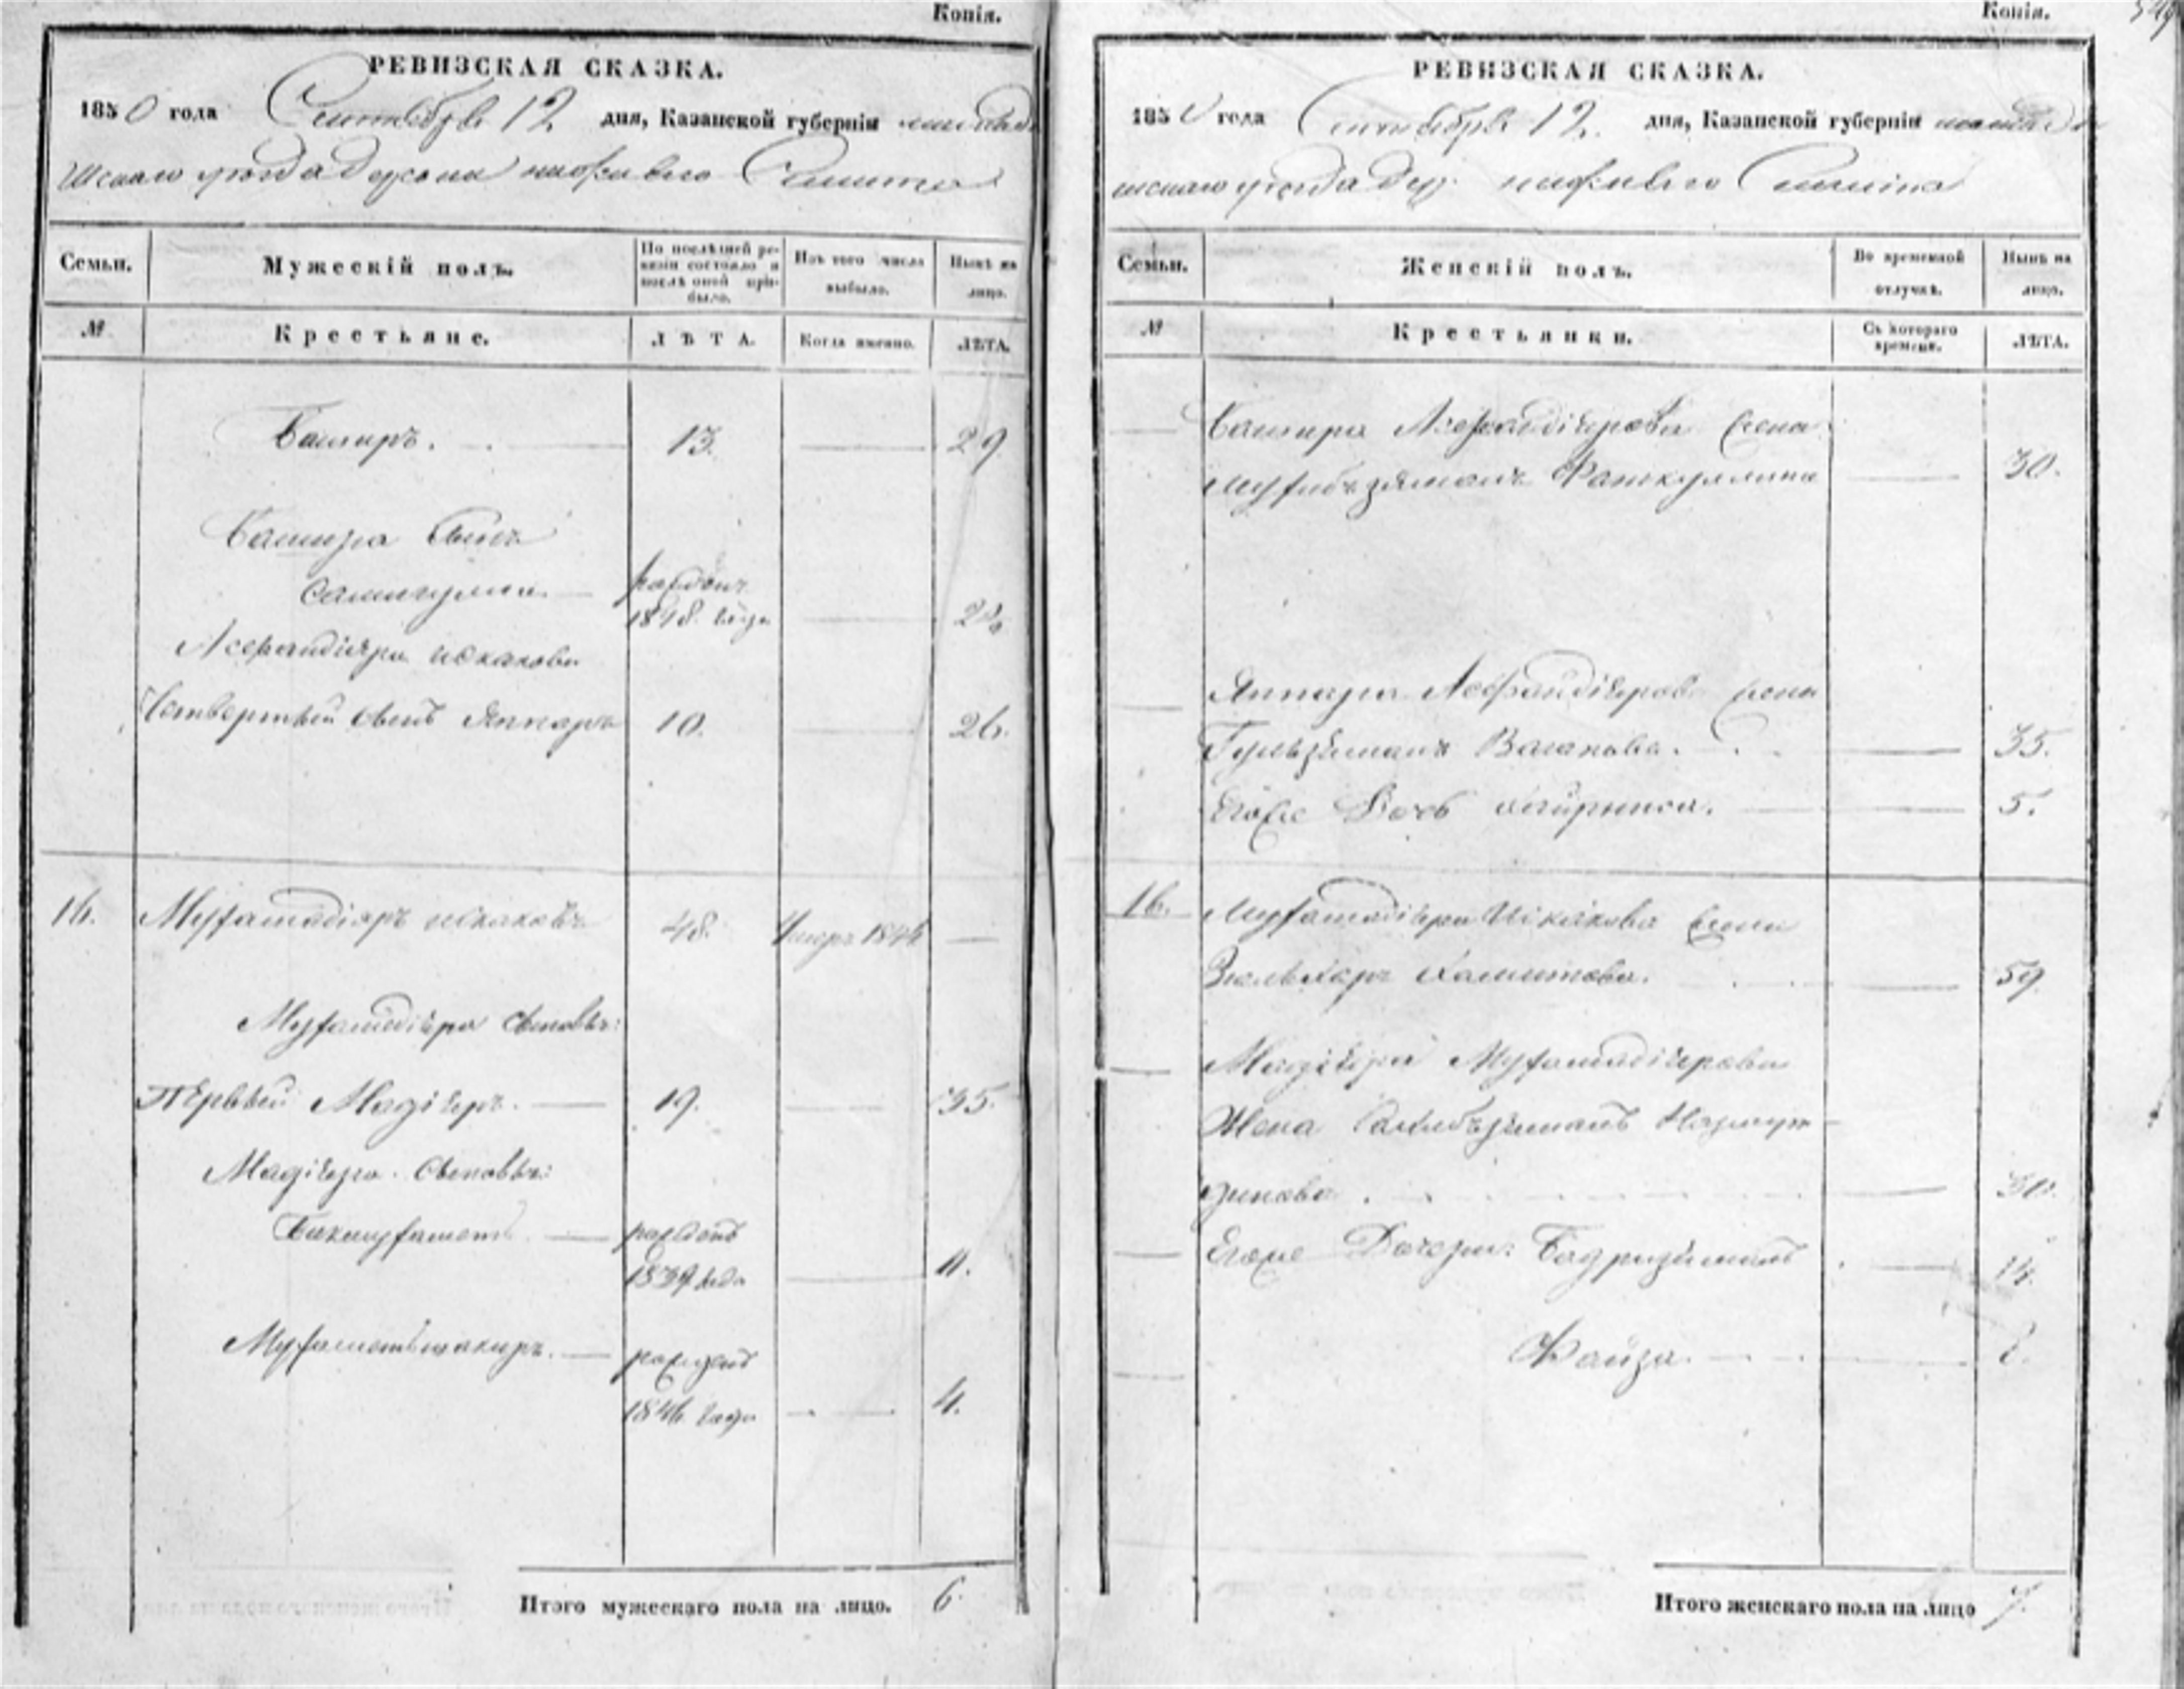 Копія.
РЕВИЗСКАЯ СКАЗКА.
1850 года Сентября 12 дня, Казанской губерніи мамады
шскаго уѣзда деревни нижняго
Семьи.
Мужескій полъ.
По послѣдней ре-
визіи состояло и
послѣ оной при-
было.
Изъ того числа
выбыло.
Нынѣ на
лицо.
№
Крестьяне.
ЛѢТА.
Когда именно.
ЛѢТА.
Баширъ. 13. 29
Башира сынъ
рожденъ
1848. года 2½
Асфандіяра Искакова
Четвертый сынъ Яппаръ 10. 26.
16. Мухамадіяръ Искаковъ 48. Умеръ 1844
Мухамедіяра сыновья:
Первый Мадіяръ. 19. 35.
Мадіяра сыновья:
Бикмухаметъ рожденъ
1839 года 11.
Мухаметшакиръ. рожденъ
1846 года 4.
Итого мужескаго пола на лицо. 6.
Копія.
РЕВИЗСКАЯ СКАЗКА.
1850 года Сентября 12. дня, Казанской губерніи мамады
шскаго уѣзда дер. нижняго
Семьи.
Женскій полъ.
Во временной
отлучкѣ.
Нынѣ на
лицо.
№
Крестьянки.
Съ котораго
времени.
ЛѢТА.
Башира Асфандіярова жена
Фаткуллина 30.
Яппара Асфандіярова жена
Гульзяманъ Ваганова. 35.
Егоже дочь 5.
16. Мухамадіяра Искакова жена
Хамитова. 59
Мадіяра Мухамадіярова
Жена
динова 30.
Егоже Дочери: Бадризяманъ 14.
Фаиза.
Итого женскаго пола на лицо 7.